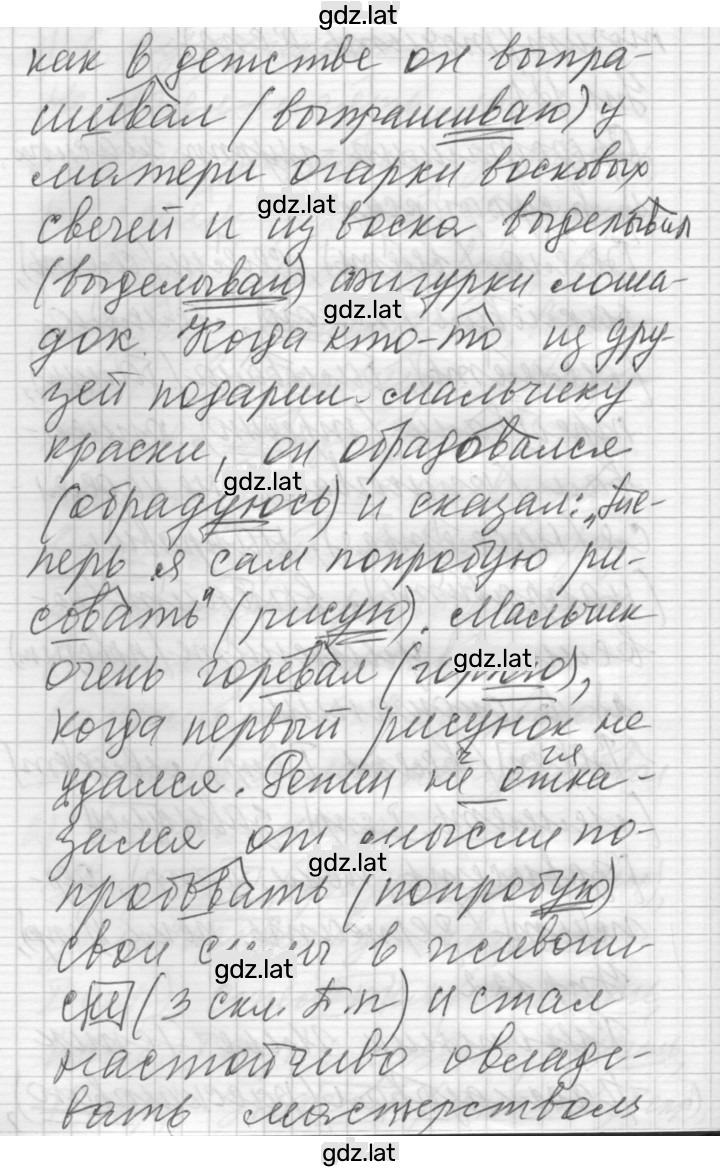 gdz.lat
как в детстве он выпра-
шивал (выпрашиваю) у
матери огарки восковых
gdz.lat
свечей и из воска выделывал
(выделываю) фигурки лоша-
gdz.lat
док. Когда кто-то из дру-
зей подарил мальчику
краски, он обрадовался
gdz.lat
(обрадуюсь) и сказал: „Те-
перь я сам попробую ри-
совать" (рисую). Мальчик
очень горевал
gdz.lat
когда первый рисунок не
удался. Репин не отка-
зался от мысли по-
gdz.lat
пробовать (попробую)
свои в живопи-
gdz.lat
си (3 скл. П.п) и стал
настойчиво овладе-
вать мастерством
gdz.lat